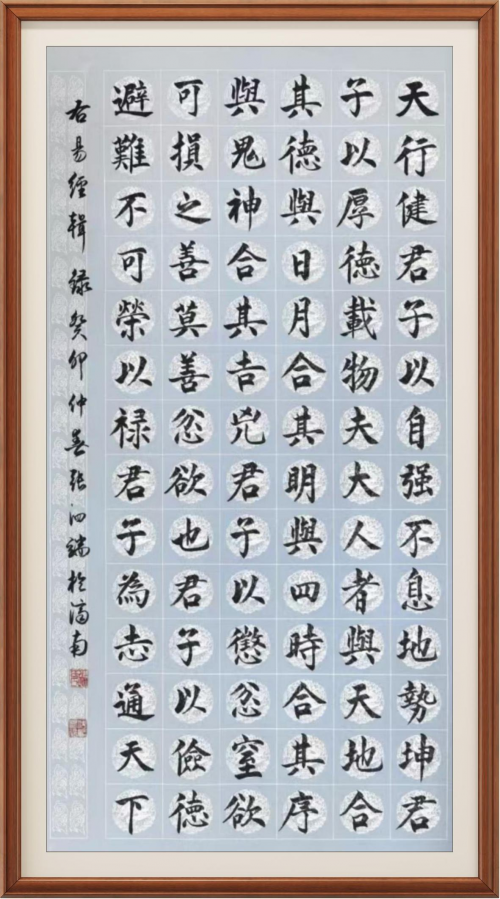 天行健君子以自强不息地勢坤君
子以厚德載物夫大人者與天地合
其德與日月合其明與四時合其序
與鬼神合其吉兇君子以懲忿窒欲
可損之善莫善忿欲也君子以儉德
避難不可榮以禄君子為志通天下
右易經輯錄癸卯仲春張泗瑞於濟南